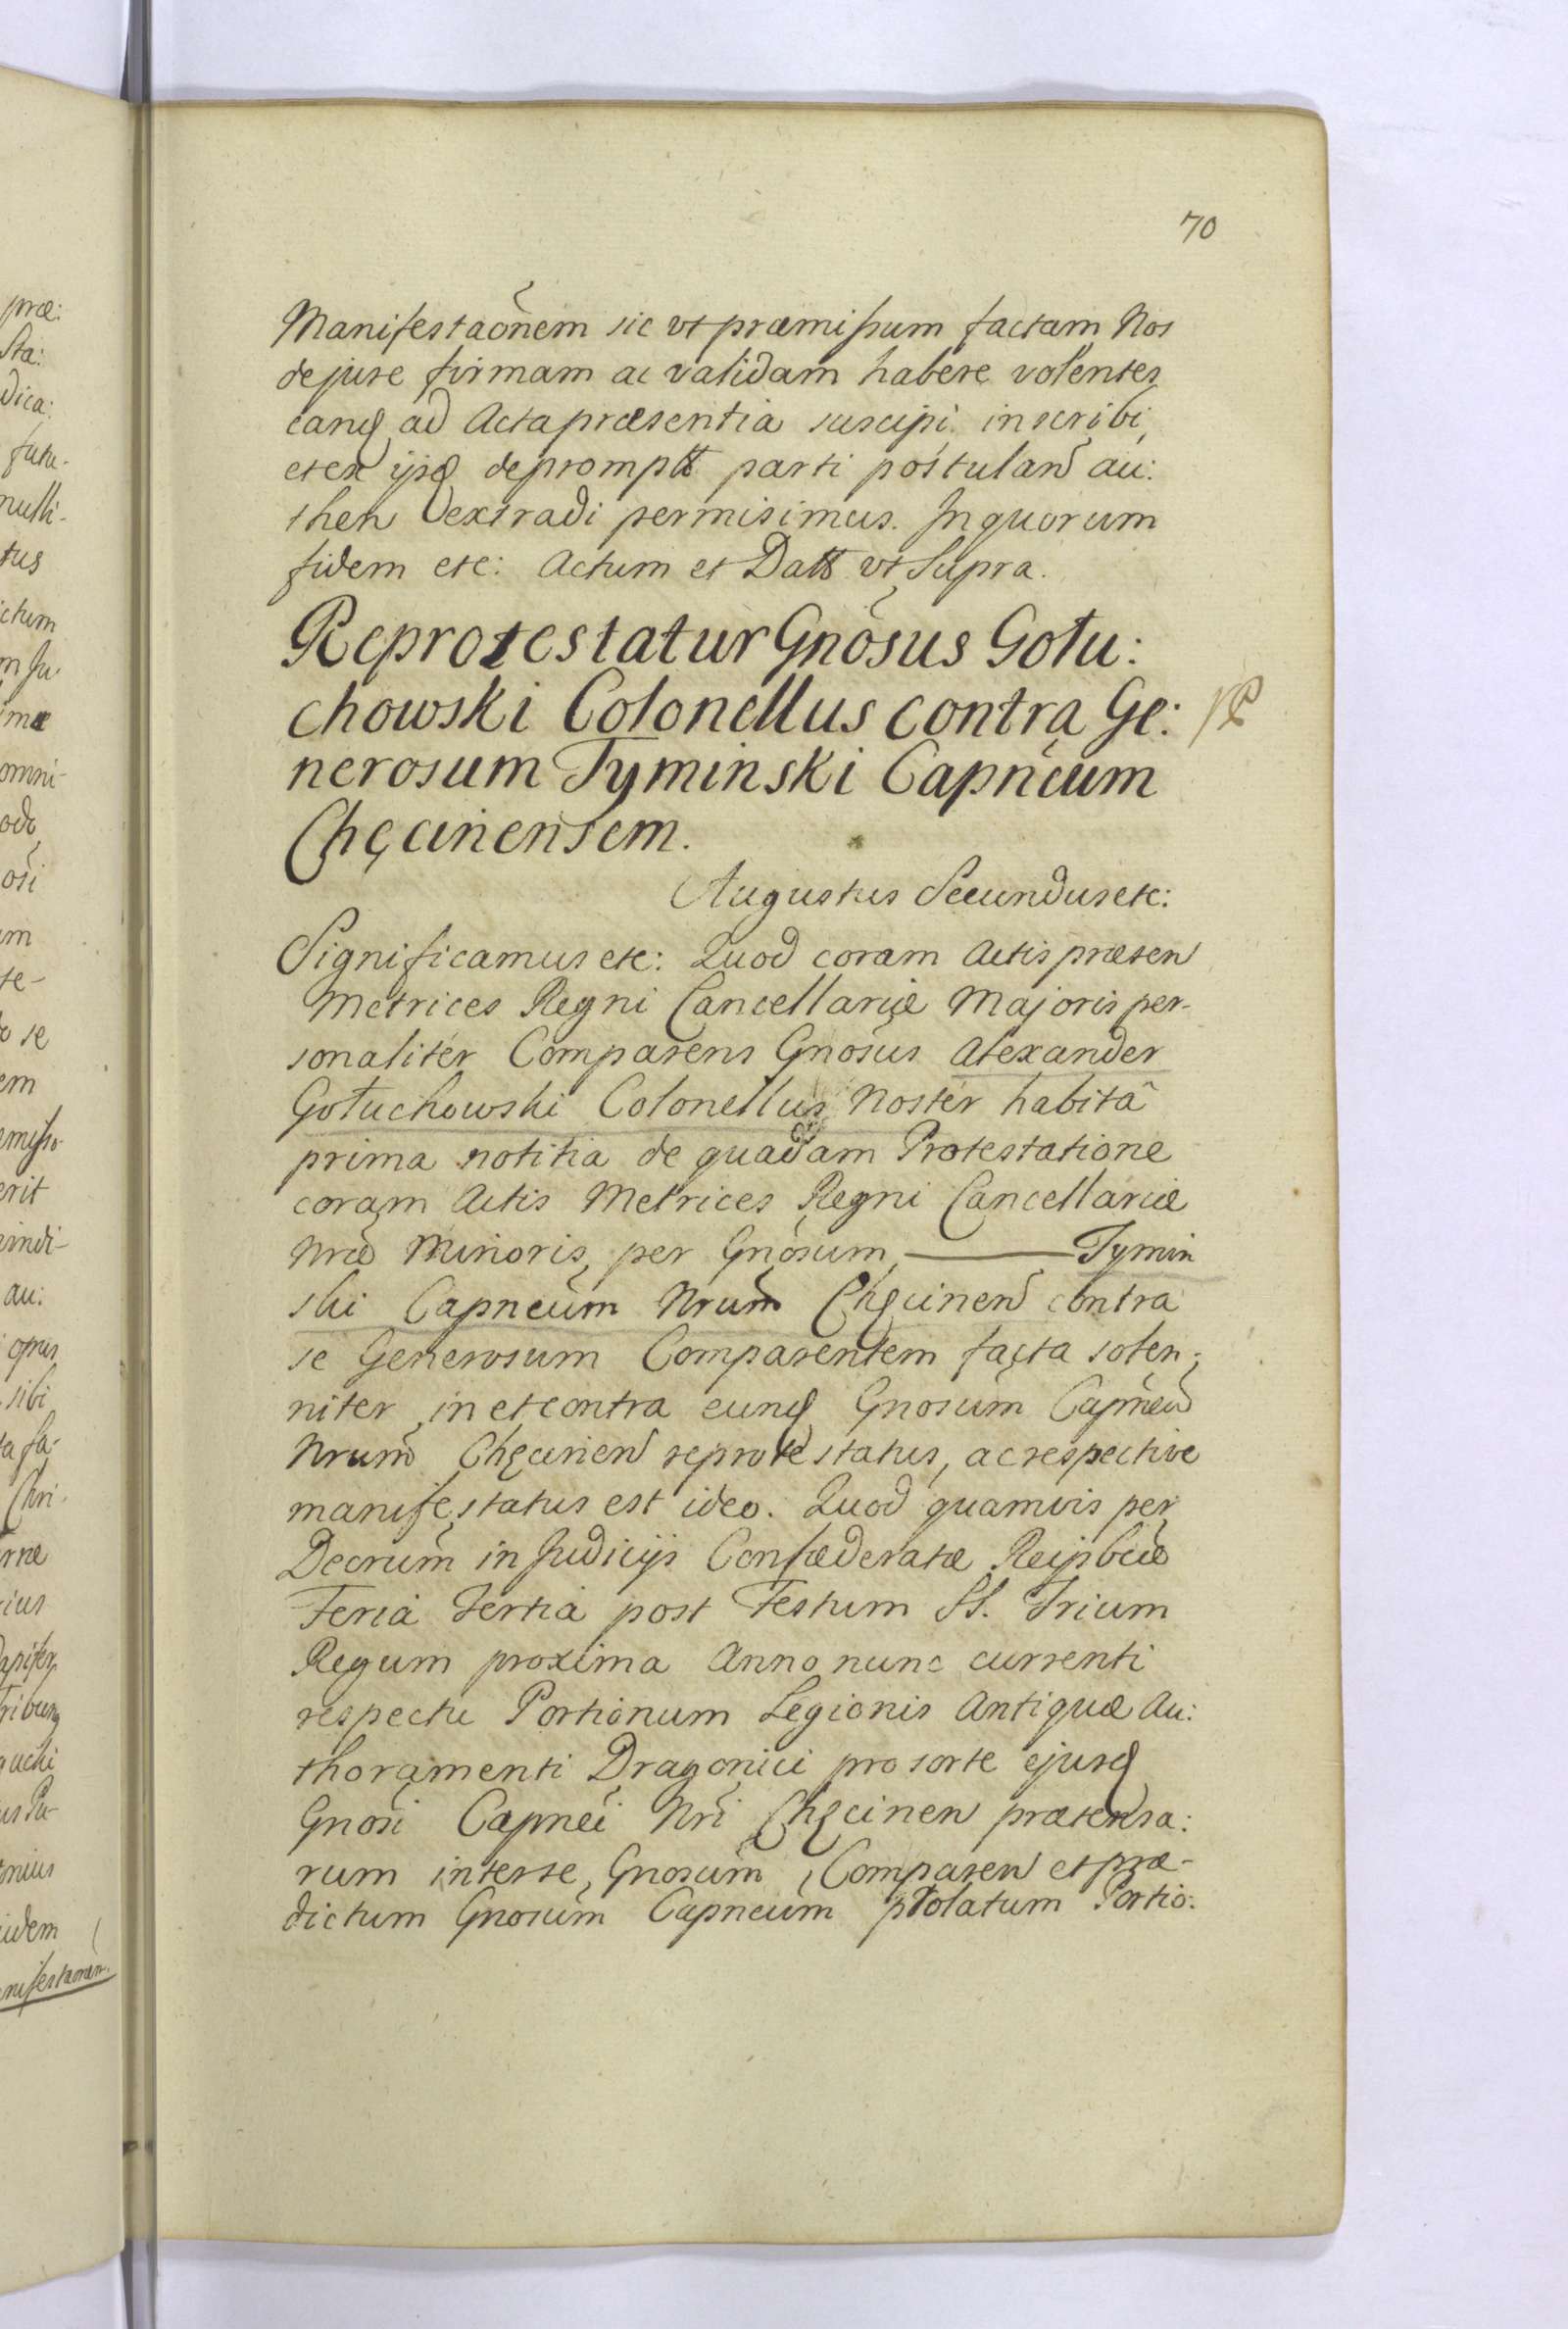 70
Manifestaõnem sic vt præmissum factam Nos
de jure firmam ac validam habere volentes
eanq ad Acta præsentia suscipi inscribi
et ex ijsd deprompt parti postulan au:
then extradi permisimus. In quorum
fidem etc: Actum et Datt vt Supra.
Reprotestatur Gnõsus Gołu:
chowski Colonellus contra Ge:
nerosum Tyminski Capñeum
Chęcinensem.
Augustus Secundus etc:
Significamus etc: Quod coram Actis præsen
Metrices Regni Cancellariæ Majoris per-
sonaliter Comparens Gnõsus Alexander
Gołuchowski Colonellus Noster habitâ
prima notitia de quadam Protestatione
coram Actis Metrices Regni Cancellariæ
Nræ Minoris, per Gnõsum ——— Tymin
ski Capneũm Nrum Chęcinen contra
se Generosum Comparentem facta solen-
niter in et contra eunq Gnosũm Capneũ
Nrum Chęcinen reprotestatus, ac respective
manifestatus est ideo. Quod quamvis per
Decrũm in Judicijs Confæderatæ Reipbcæ
Feria Tertia post Festum SS. Trium
Regum proxima Anno nunc currenti
respectu Portionum Legionis Antiquæ Au:
thoramenti Dragonici pro sorte ejusq
Gnosi Capnei Nri Chęcinen prætensa:
rum inter se, Gnosũm Comparen et præ-
dictum Gnosũm Capneũm prolatum Portio:
præ:
Sta:
dica:
futu-
nulli-
tus
ictum
omni-
te-
se
em
erit
au:
opus
sibi
Chri-
ius
idem